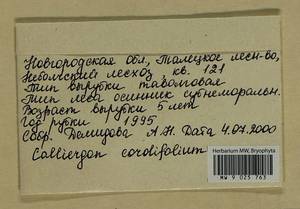 Новгородская обл, Талецкое лесн-во,
Небольский лесхоз, кв. 121
Тип вырубки таволговая
Тип леса осинник субнеморальн.
Возраст вырубки 5 лет
Год рубки 1995
Сбор. Демидова А.Н. Дата 4.07.2000
Calliergon cordifolium
Herbarium MW, Bryophyta
MW 9 025 763